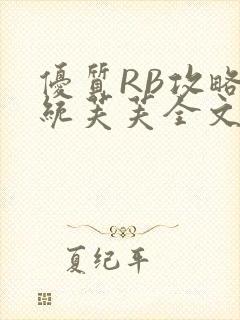 優質RB攻略
統芙芙全文
夏纪年